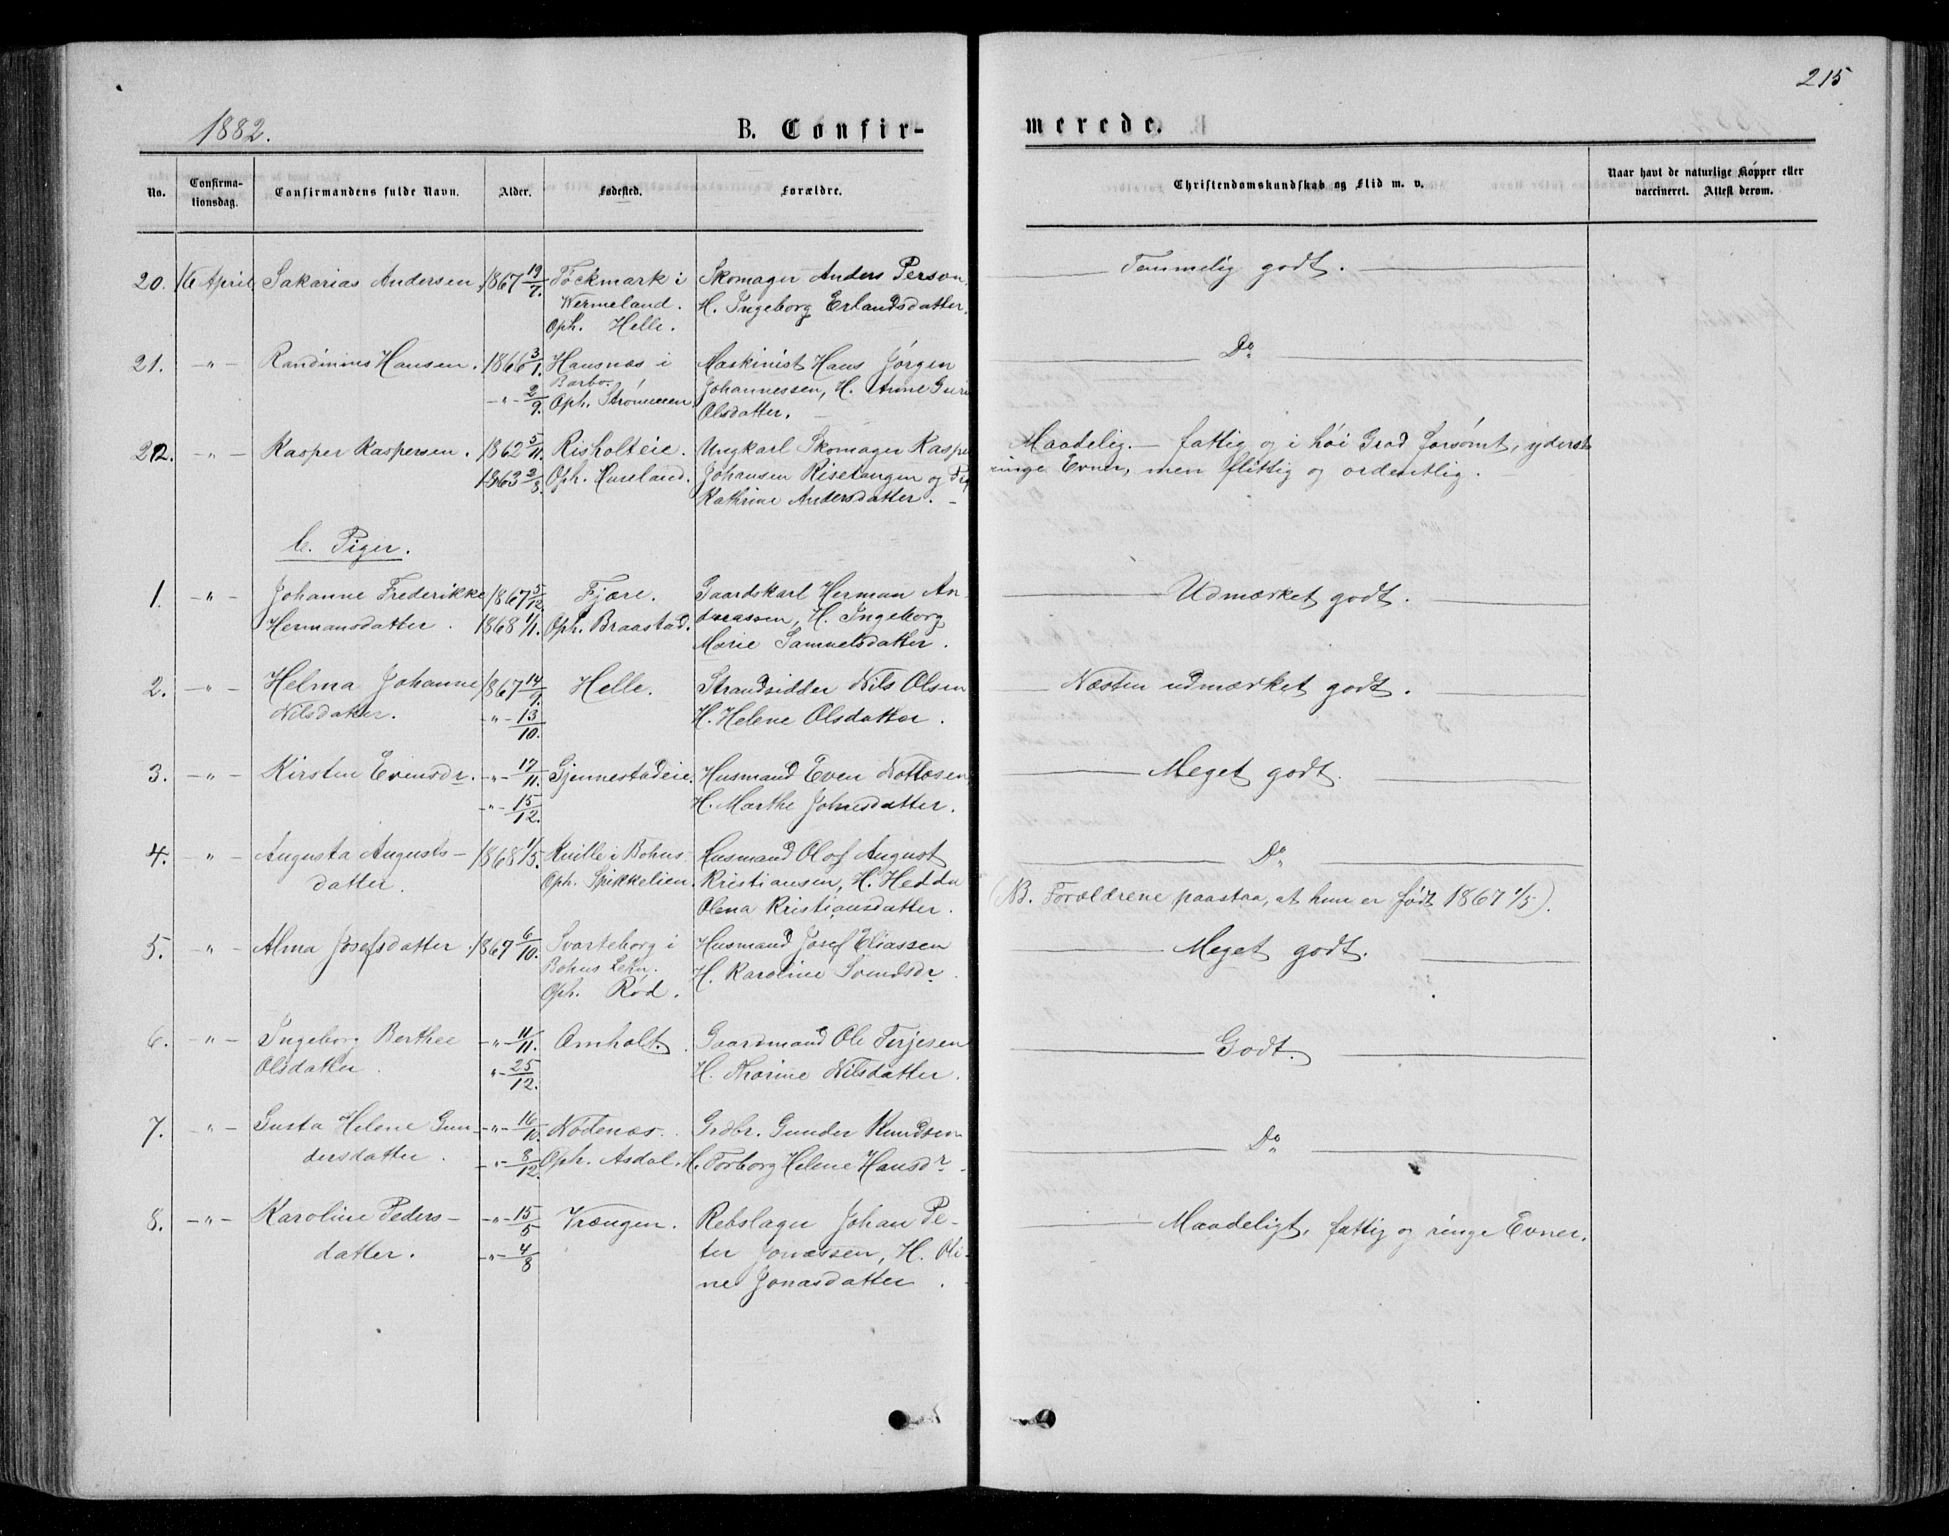 215
1882.
B. Confir-
merede.
No.
Confirma-
tionsdag.
Confirmandens fulde Navn.
Alder.
Fødested.
Forældre.
Christendomskundskab og Flid m. v.
Naar havt de naturlige Kopper eller
vaccineret. Attest derom.
20. 16 April Sakarias Andersen. 1867 19/7. Töckmark i Skomager Anders Person, Temmelig godt.
Wermeland. H. Ingeborg Erlandsdatter.
Oph. Helle.
21. -"- Randinius Hansen. 1866 3/1. Hausnæs i Maskinist Hans Jørgen Do
Barbo. Johannessen, H. Anne Guri
-"- 2/9. Oph. Strømmen Olsdatter.
22. -"- Kasper Kaspersen. 1862 5/11. Risholteie. Ungkarl Skomager Kasper Maadelig. - fattig og i høi Grad forsømt, yderst
1863 2/8. Oph. Huseland. Johansen Risetangen og ringe Evner, men flittig og ordentlig.
Kathrine Andersdatter.
b. Piger.
1. -"- Johanne Frederikke 1867 5/12. Fjære. Gaardskarl Herman An- Udmærket godt.
Hermansdatter. 1868 1/1. Oph. Braastad. dreassen, H. Ingeborg
Marie Samuelsdatter.
2. -"- Helma Johanne 1867 14/9. Helle. Strandsidder Nils Olsen Næsten udmærket godt.
Nilsdatter. -"- 13/10. H. Helene Olsdatter.
3. -"- Kirsten Evensdr. -"- 17/11. Gjennestadeie. Husmand Even Nottosen Meget godt.
-"- 15/12. H. Marthe Johnsdatter.
4. -"- Augusta Augusts- 1868 1/5. Kville i Bohus- Husmand Olof August Do
datter. Oph. Spikkelien. Kristiansen, H. Hedda (NB. Forældrene paastaa, at hun er født 1867 1/5).
Olena Kristiansdatter.
5. " Alma Josefsdatter. 1867 6/10. Svarteborg i Husmand Josef Eliassen Meget godt.
Bohus Lehn. H. Karoline Svendsdr.
Oph. Röd.
6. -"- Ingeborg Berthee -"- 11/11. Omholt. Gaardmand Ole Terjesen Godt.
Olsdatter. "- 25/12. H. Thorine Nilsdatter.
7. -"- Gusta Helene Gun- -"- 16/10. Nødenæs. Grdbr. Gunder Knudsen Do
dersdatter. -"- 8/12. Oph. Asdal. H. Torborg Helene Hansdr.
8. -"- Karoline Peders- -"- 15/5 Vrængen. Rebslager Johan Pe- Maadeligt, fattig og ringe Evner.
datter. -"- 4/8 ter Jonassen, H. Oli-
ne Jonasdatter.